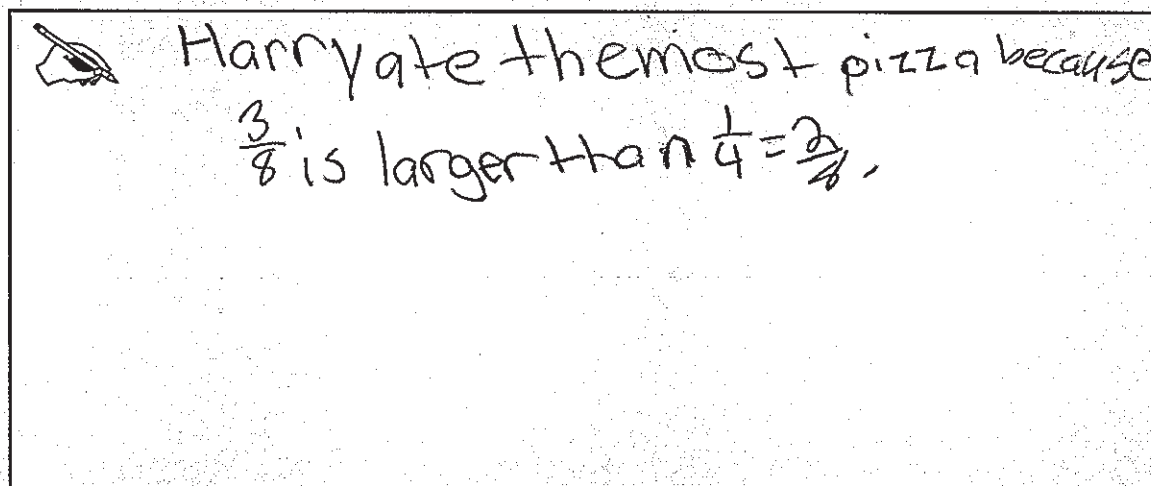 Harry ate the most pizza because
3/8 is larger than 1/4 = 2/8.